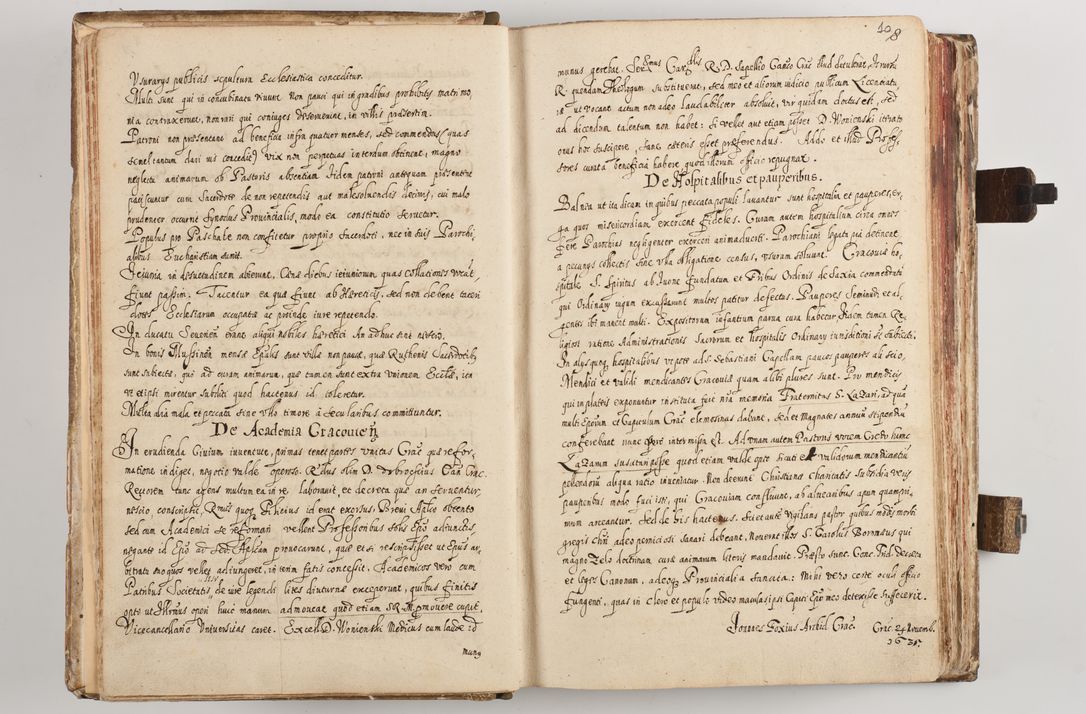 Usurarys publicis sepultura Ecclesiastica conceditur.
Multi sunt qui in concubinatu vivunt. Non pauci qui in gradibus prohibitis matrimo,
nia contraxerunt, non rari qui coniuges diverterunt, in villis praesertim.
Patroni non praesentant ad beneficia infra quatuor menses, sed commendas (quas
semel tantum dari ius concedit) vix non perpetuas interdum obtinent, magno
neglectu animarum ob Pastoris absentiam. Iidem patroni antequam praesentent
paciscuntur cum Sacerdote de non repetendis aut male solvendis decimis, cui malo
prudenter occurrit Synodus Provincialis, modo ea constitutio servetur.
Populus pro Paschate non confitetur proprio Sacerdoti, nec in suis Parochi,
alibus Eucharistiam sumit.
Ieiunia in desuetudinem abierunt, Cenae diebus ieiuniorum quas Collationes vocat,
fiunt passim. Tacentur ea quae fiunt ab Haereticis, sed non debent taceri
dotes Ecclesiarum occupatae ac proinde iure repetendo.
In ducatu Severien erant aliqui nobiles haeretici. An adhuc sint nescio.
In bonis Mussinen mensae Epalis sunt villae non paucae, quae Ruthenis Sacerdotib
sunt subiectae, qui ad curam animarum, quae tamen sunt extra Unionem Eccliae, ita
ut etipsi mirentur subditi quod hactenus id toleretur.
Multa alia mala et peccata sine ullo timore à secularibus committuntur.
De Academia Cracovien
In erudienda Civium iuventute, primas tenet partes Universitas Crac. quae refor,
matione indiget, negotio valde operoso. Rndus olim D. Dobrocissius Can Crac.
Rectorem tunc agens multum ea in re laboravit, et decreta quae an serventur,
nescio, conscripsit. Rmus quoq id erat exorsus. Brevi Aplico obtento
sed cum Academici se reformari vellent Professoribus solis Epo adiunctis
negante id Epo ad Sed. Aplicam provocarunt, quae etsi rescripsisset ut Epus ar,
bitratu suo quos vellet adiungeret, interim fatis concessit. Academicos vero cum
Patribus Societatis de iure legendi lites diuturnae exceperunt, quibus finitis
opto ut Ills operi huic manum admoveat quod etiam SR. M. promovere cupit.
Vicecancellario Universitas caret. Excell D. Wonienski Medicus cum laude id
mung
108
munus gerebat. Sermus Carlis R. D. Sapellio Canco Crac illud detulerat, Interim
R. quendam Theologum substituerat, sed meo et aliorum iudicio publicum Licentiatu
ut vocant actum non adeo laudabiliter absolvit, vir quidam doctus est, sed
ad dicendum talentum non habet: Si vellet aut etiam posset D. Wonienski iterato
onus hoc suscipere, sane caeteris esset praeferendus. Addo et illud Profes,
sores curata beneficia habere quod illorum officio repugnat.
De Hospitalibus et pauperibus.
Balnea ut ita dicam in quibus peccata populi lavantur sunt hospitalia et pauperes, er,
ga quos misericordiam exercent fideles. Curam autem hospitalium circa omnes
fere Parochias negligenter exerceri animadverti. Parochiani legata pia detinent
a pecunys collectis sine ulla obligatione census, usuram solvunt. Cracoviae ho,
spitale S. Spiritus ab Ivone fundatum et Fribus Ordinis de Saxia commendatu
qui Ordinary iugum excusserunt multos patitur defectus. Pauperes seminudi et al,
gentes ibi manent multi. Expositorum infantium parva cura habetur. Iidem tamen Re,
ligiosi ratione Administrationis Sacrorum et hospitalis Ordinary iurisdictioni se subiecit.
In alysquoq hospitalibus ut pote ad S. Sebastiani Capellam paucos pauperes ali scio,
Mendici et validi mendicantes Cracoviae quam alibi plures sunt. Pro mendicis
qui in plateis exponuntur instituta fuit nia memoria Fraternitas S. Lazari, ad qua
multi Eporum et Capitulum Crac elemosinas dabant, sed et Magnates annuu stipendiu
conferebant nunc prope intermissa est. Ad unam autem Pastoris vocem Credo hunc
Lazarum suscitari posse quod etiam valde opto sicuti et validorum mendicantiu
pellendoru aliqua ratio inveniatur. Non deerunt Christianae charitatis subsidia veris
pauperibus modo fucisti, qui Cracoviam confluunt, ab alvearibus apum quampri,
mum arceantur. Sed de his hactenus. Sciet autem vigilans pastor quibus modis morbi
gregis Chri adeo perniciosi sanari debeant. Noverat illos S. Carolus Borrmaeus qui
magno zelo doctrinam curae animarum literis mandavit. Praesto sunt Conc. Trid. Decreta
et leges Canonum, adeoq Provincialia sancita: Mihi vero corte oculi officio
fungenti, quas in clero et populo video maculas ipsi Capiti Epo meo detexisse sufficerit.
Joannes Foxius Archid Crac. Crac. 24 Novemb.
1631.